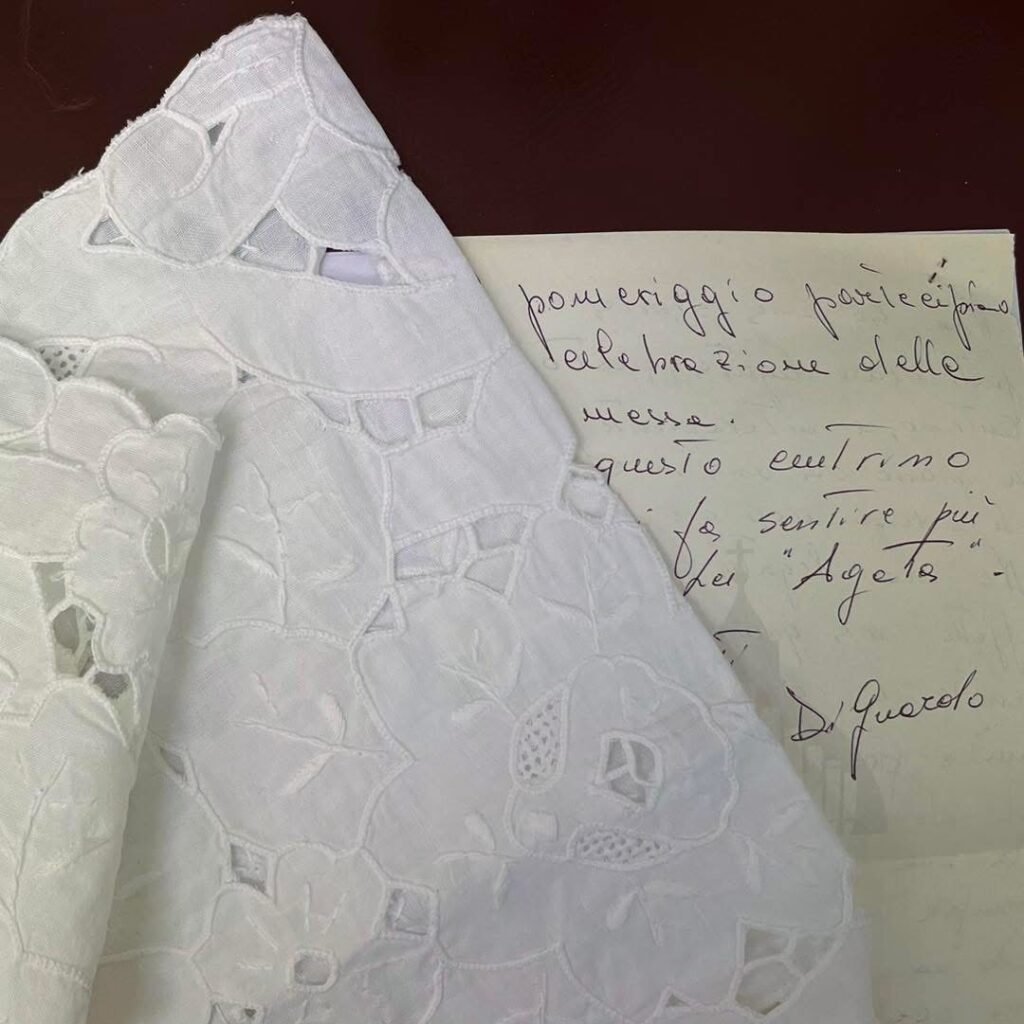 pomeriggio partecipiamo
celebrazione delle
messe.
questo centrino
fa sentire più
"Agata" -
Di Guardo